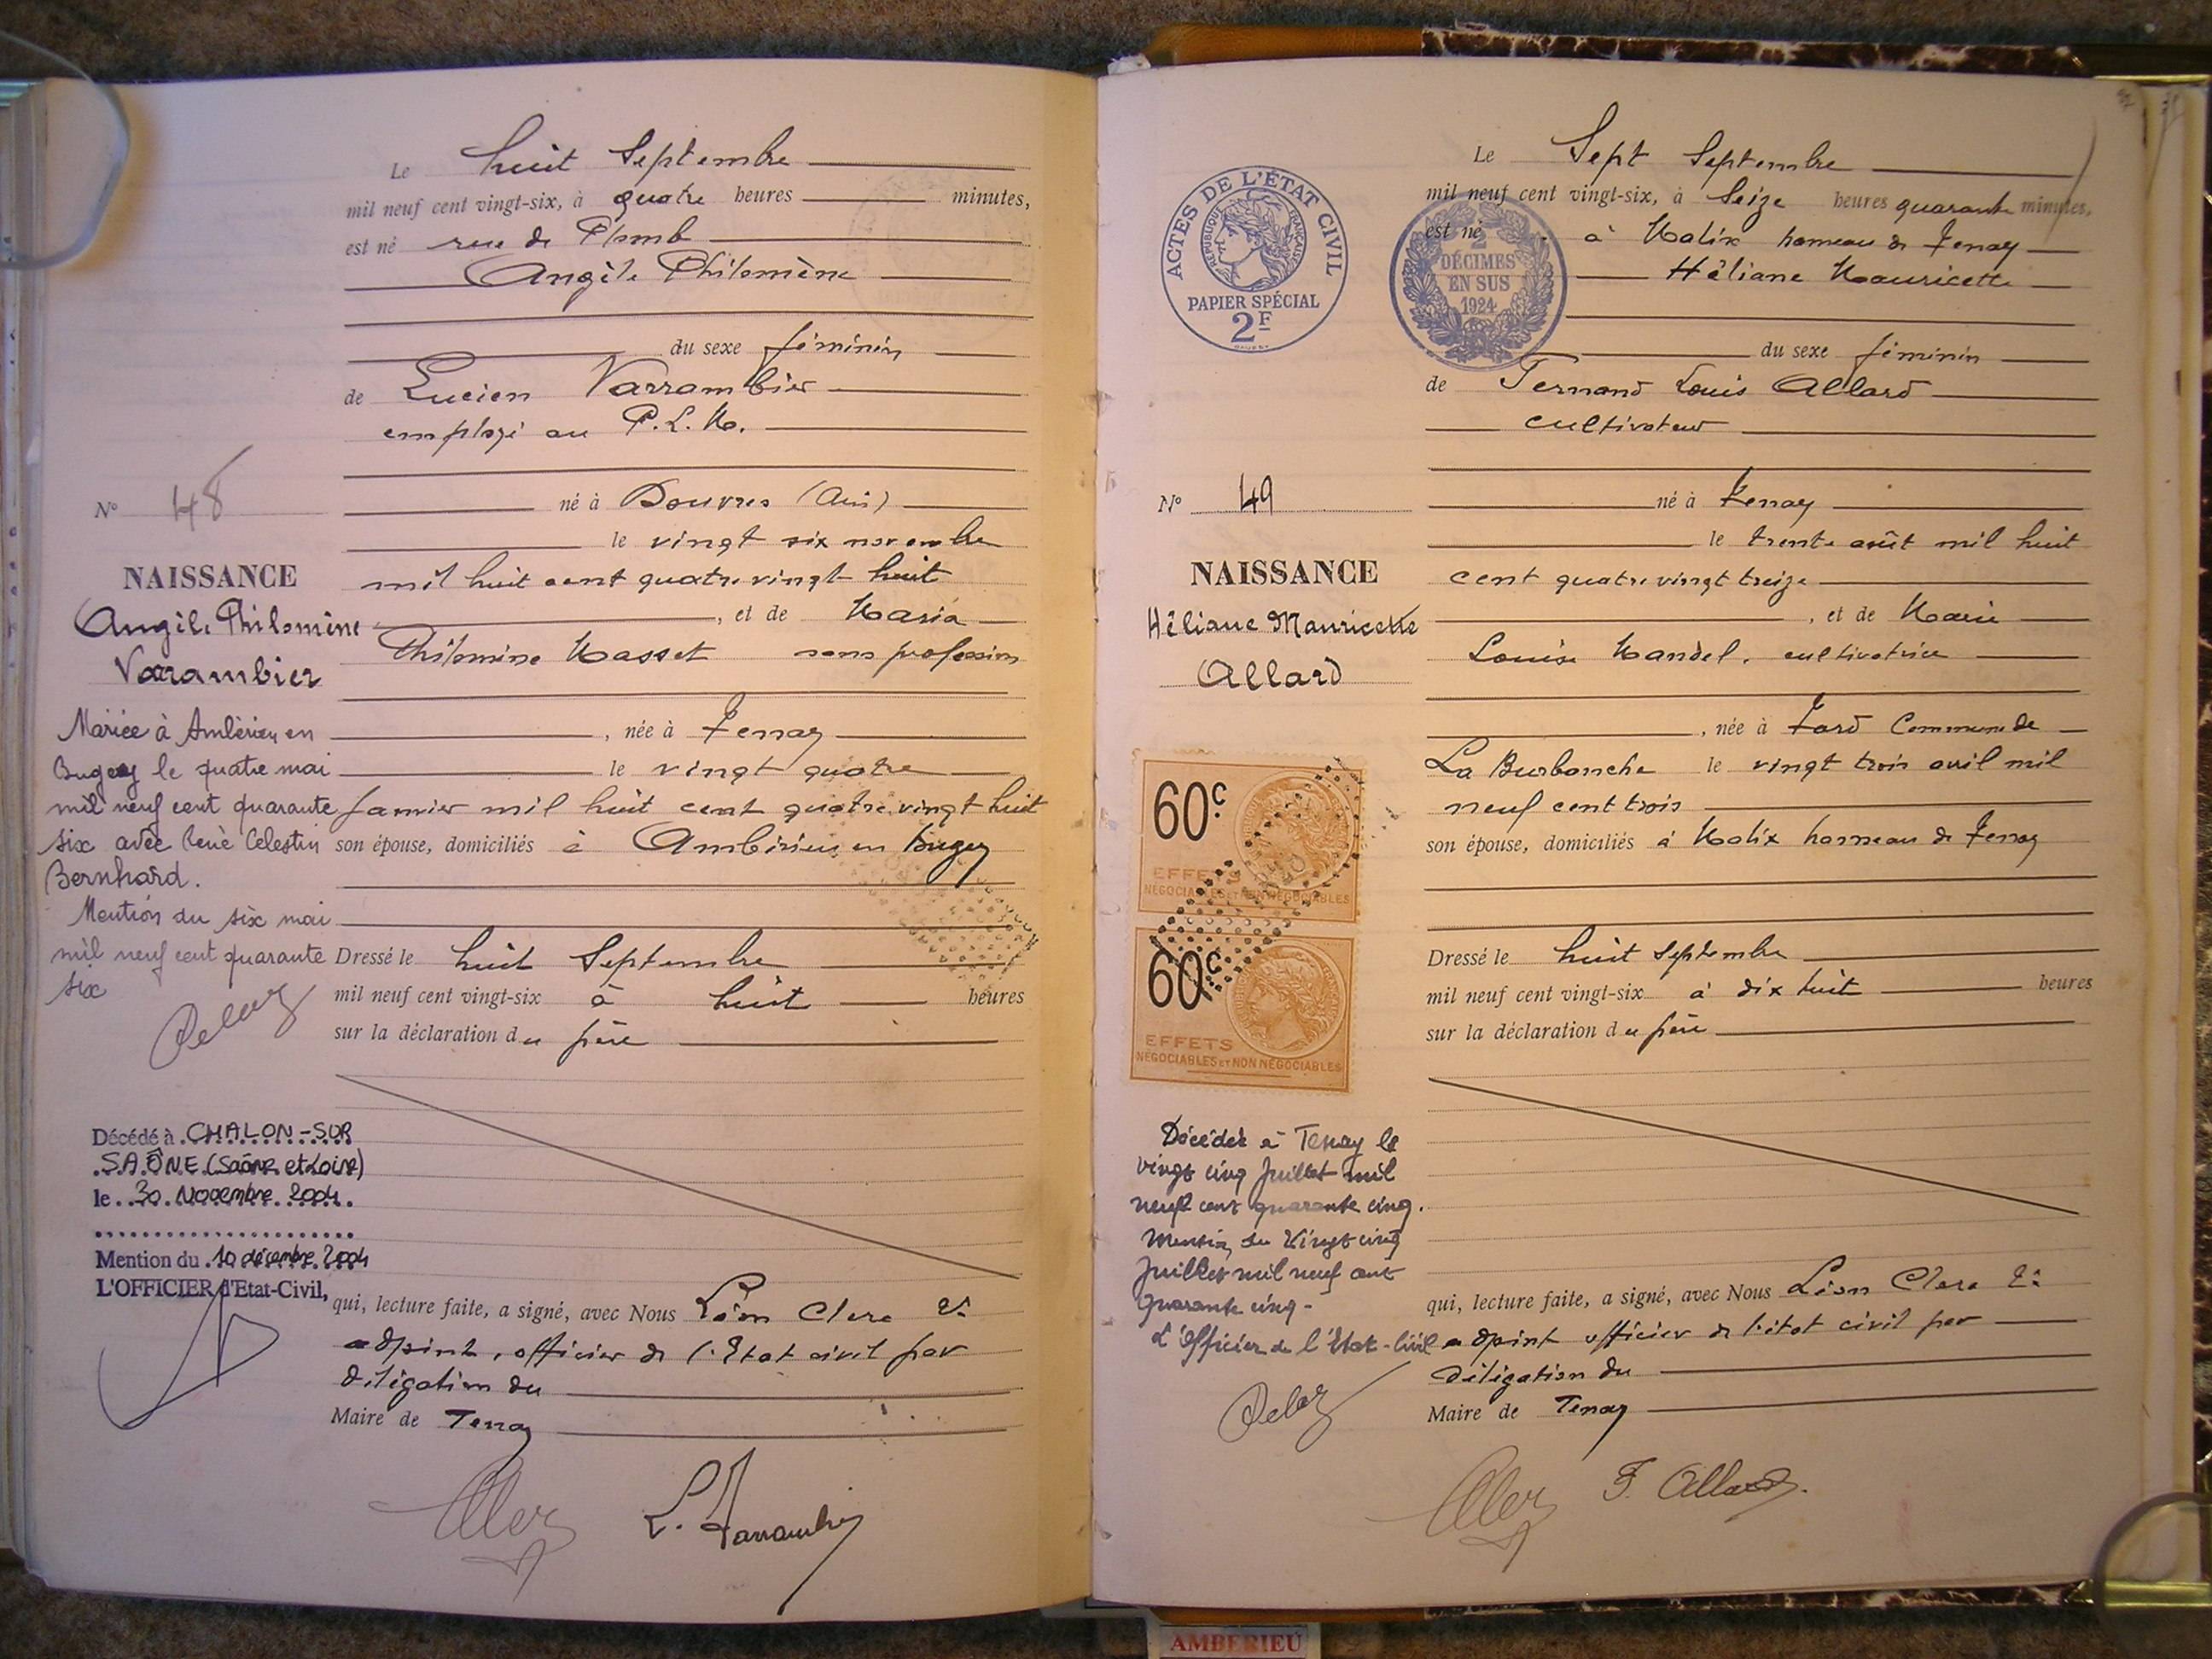 Le huit Septembre
mil neuf cent vingt-six, à quatre heures minutes,
est né rue de Plomb
Angèle Philomène
du sexe féminin
de Lucien Varrambier
employé au P.L.M.
né à Douvres (Ain)
le vingt six novembre
mil huit cent quatre vingt huit
, et de Maria
Philomène Masset sans profession
, née à Tenay
le vingt quatre
Janvier mil huit cent quatre vingt huit
son épouse, domiciliés à Ambérieu en Bugey
Dressé le huit Septembre
mil neuf cent vingt-six à huit heures
sur la déclaration du père
qui, lecture faite, a signé, avec Nous Léon Clerc 2e
adjoint, officier de l'Etat civil par
délégation du
Maire de Tenay
L. Varrambier
N° 48
NAISSANCE
Angèle Philomène
Varambier
Mariée à Ambérieu en
Bugey le quatre mai
mil neuf cent quarante
six avec René Célestin
Bernhard.
Mention du six mai
mil neuf cent quarante
six
Décédé à CHALON-SUR
SAÔNE (Saône et Loire)
le 30 Novembre 2004
Mention du 10 décembre 2004
L'OFFICIER d'Etat-Civil,
ACTES DE L'ÉTAT CIVIL
RÉPUBLIQUE FRANÇAISE
PAPIER SPÉCIAL
2F
2
DÉCIMES
EN SUS
1924
Le Sept Septembre
mil neuf cent vingt-six, à Seize heures quarante minutes,
est né à Malix hameau de Tenay
Héliane Mauricette
du sexe féminin
de Fernand Louis Allard
cultivateur
né à Tenay
le trente août mil huit
cent quatre vingt treize
, et de Marie
Louise Mandel, cultivatrice
, née à Tard Commune de
La Burbanche le vingt trois avril mil
neuf cent trois
son épouse, domiciliés à Malix hameau de Tenay
Dressé le huit Septembre
mil neuf cent vingt-six à dix huit heures
sur la déclaration du père
qui, lecture faite, a signé, avec Nous Léon Clerc 2e
adjoint officier de l'état civil par
délégation du
Maire de Tenay
F. Allard.
N° 49
NAISSANCE
Héliane Mauricette
Allard
60c
EFFETS
NÉGOCIABLES ET NON NÉGOCIABLES
60c
EFFETS
NÉGOCIABLES ET NON NÉGOCIABLES
Décédée à Tenay le
vingt cinq Juillet mil
neuf cent quarante cinq.
Mention du Vingt cinq
Juillet mil neuf cent
quarante cinq -
L'Officier de l'Etat-Civil
AMBERIEU